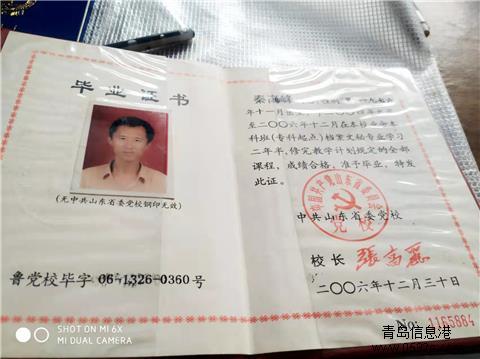 毕业证书
(无中共山东省委党校钢印无效)
鲁党校毕字 06-1326-0360号
秦高峰
一九七六
年十一月
二〇〇六年十二月在本校业余本
科班(专科起点)档案文秘专业学习
二年半,修完教学计划规定的全部
课程,成绩合格,准予毕业,特发
此证。
中共山东省委党校
党校
校长 张高丽
二〇〇六年十二月三十日
No. 1165884
SHOT ON MI 6X
MI DUAL CAMERA
青岛信息港